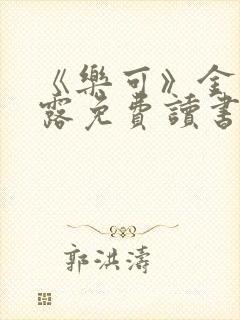 《樂可》金
露免費讀書
郭洪濤